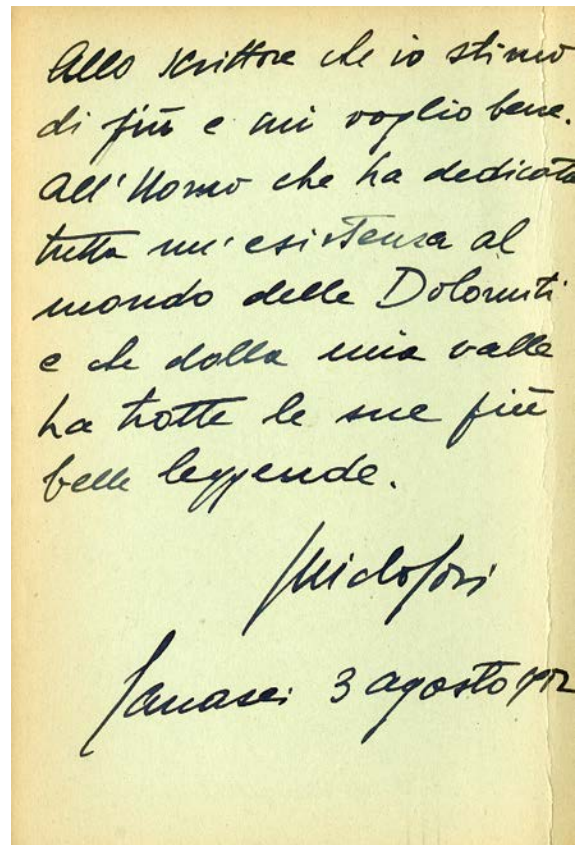 Allo scrittore che io stimo
di più e mi voglio bene.
All'Uomo che ha dedicato
tutta un'esistenza al
mondo delle Dolomiti
e che dalla mia valle
ha tratte le sue più
belle leggende.
3 agosto